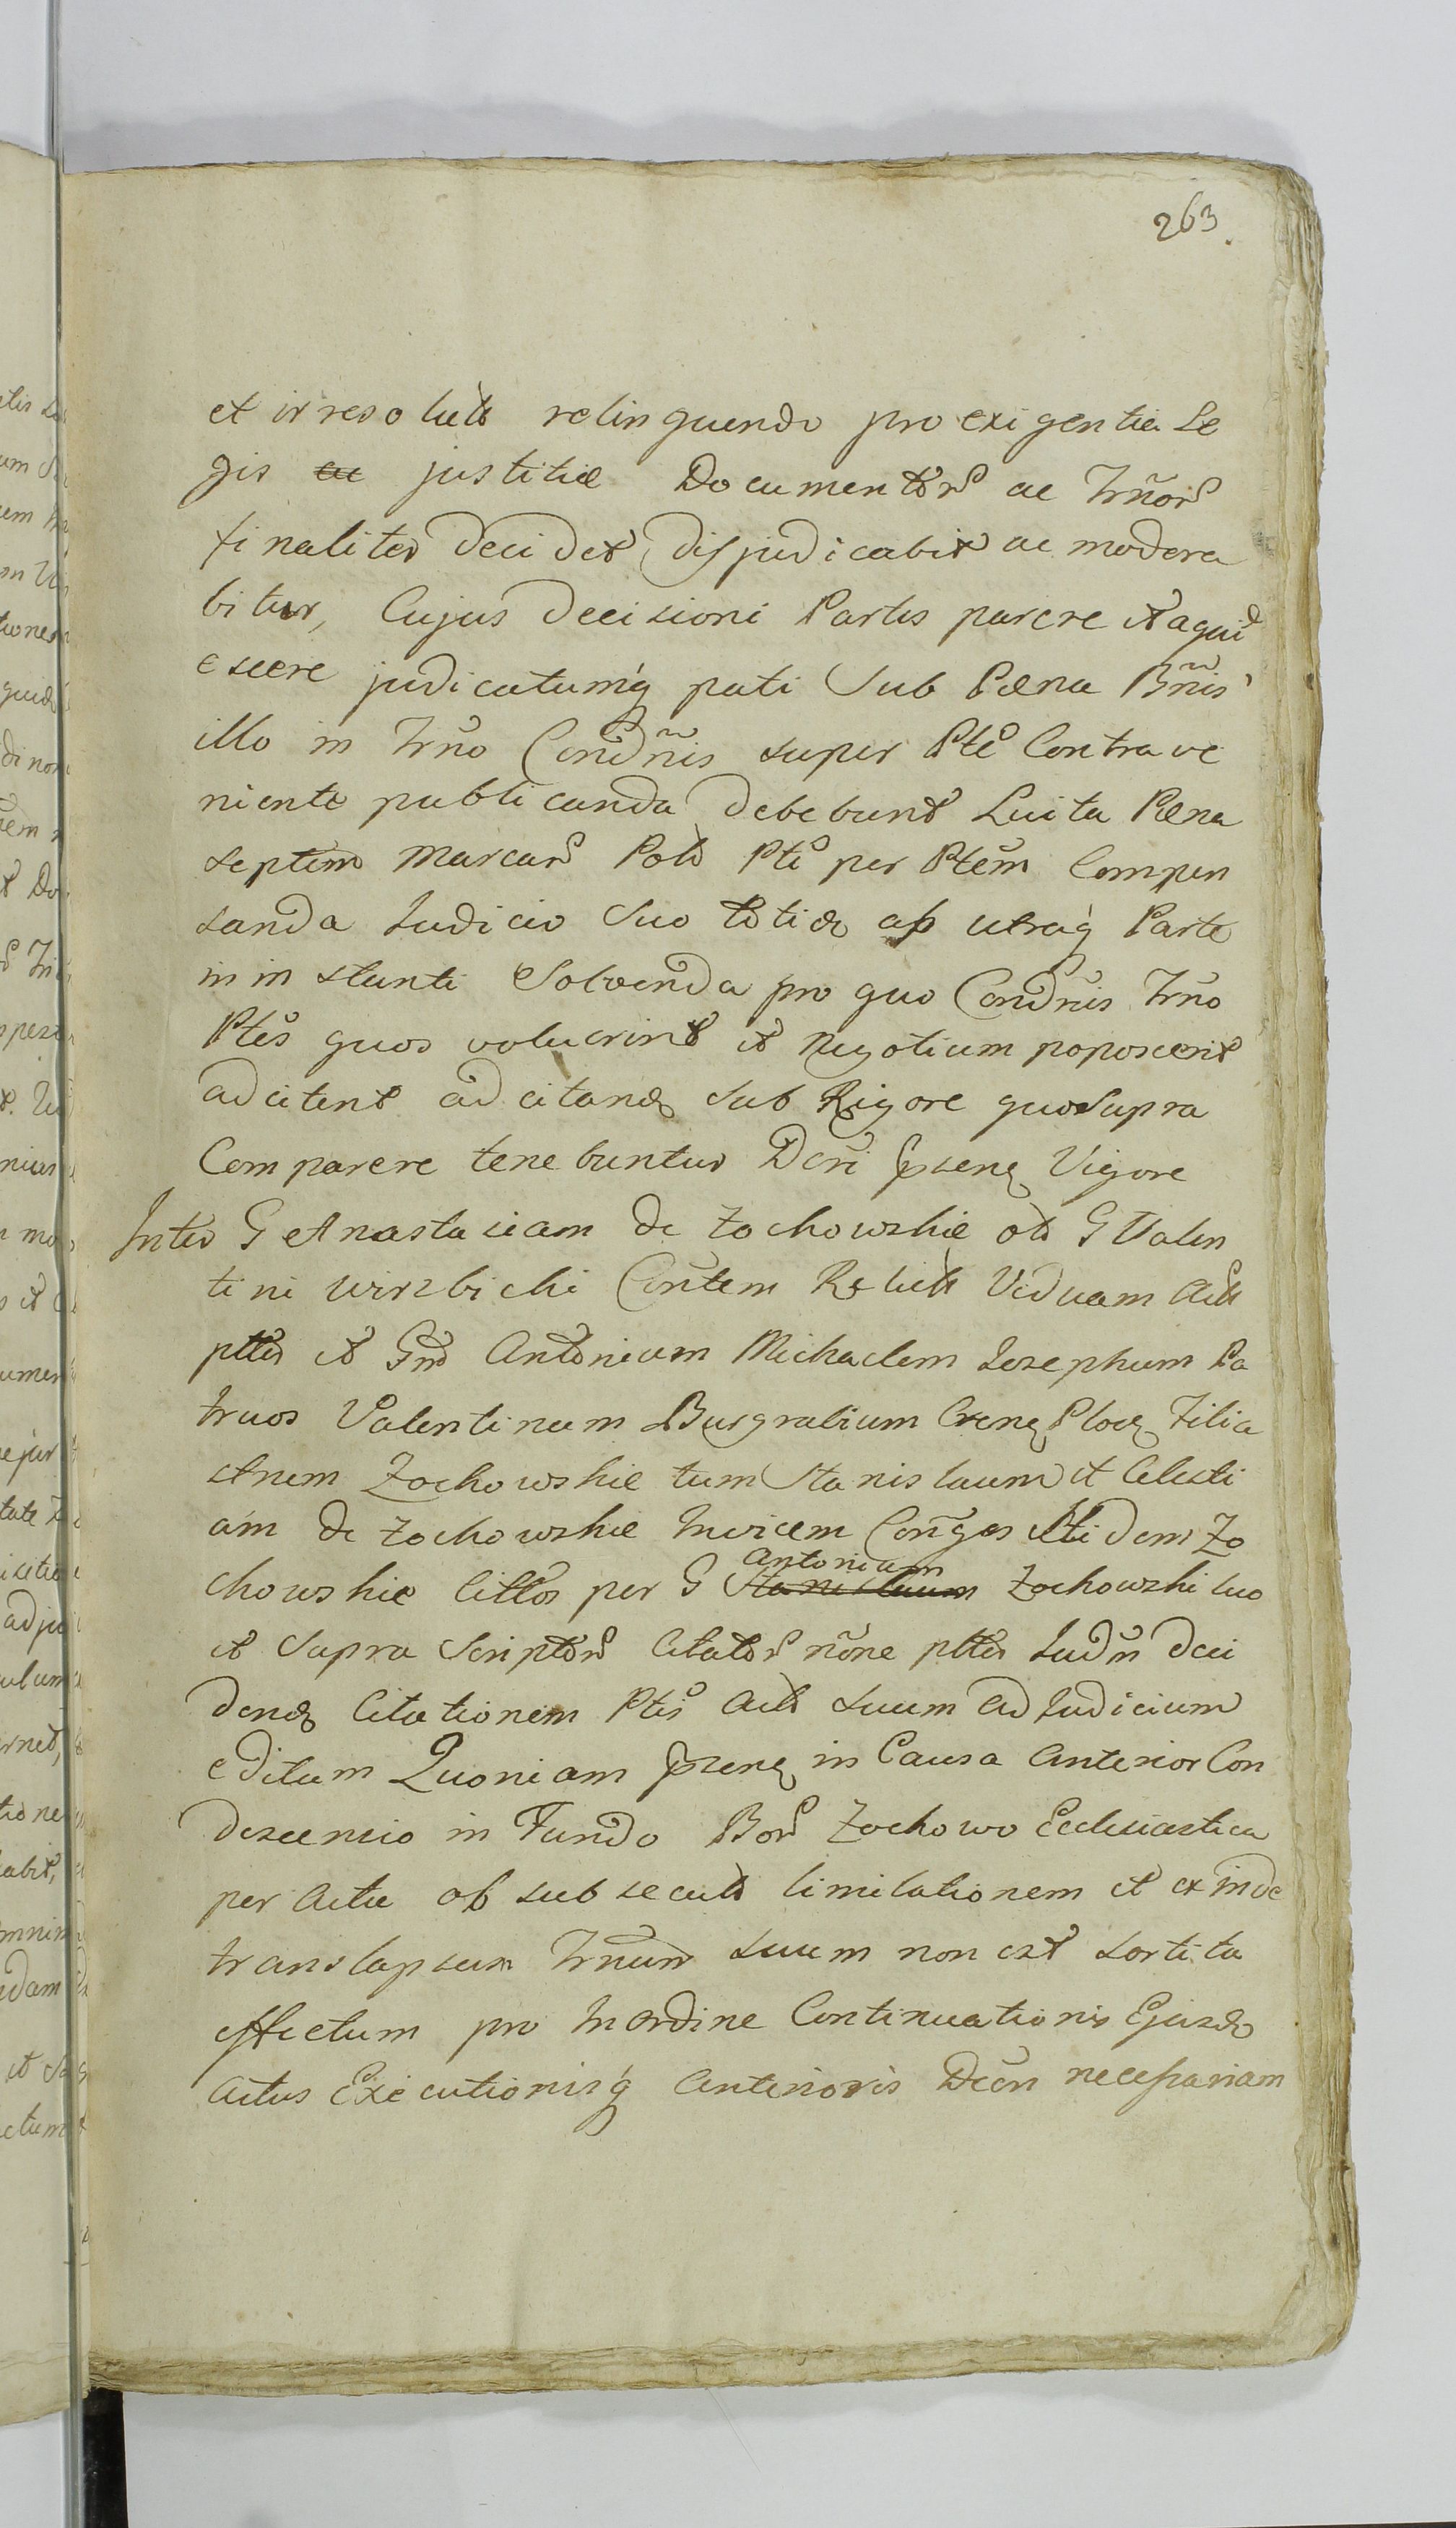 263.
et irresolutô relinquendo pro exigentia Le
gis ac justitiæ Documentorũ ac Trñorũ
finaliter decidet disjudicabit ac modera
bitur, Cujus decisioni Partes parere et aqui
escere judicatumq́ pati sub Pæna Bñnis
illo in Trño Condñnis super Pte Contrave
niente publicanda debebunt Luita Pæna
septem Marcarũ Pol Pti per Ptem Compen
sanda Judicio suo totid ab utraq́ Parte
in instanti Solvenda pro quo Condñis Trño
Ptes quos voluerint et Negotium poposcerit
adcitent adcitand sub Rigore quo supra
Comparere tenebuntur Dcri psenq Vigore
Inter G Anastasiam de Zochowskie ol G Valen
tini Wirzbicki Contem Relictã Viduam Act
ptter et Gnos Antonium Michaelem Josephum Pa
truos Valentinum Burgrabium Crenq Plocq Filia
strum Zochowskie tum Stanislaum et Celesti
am de Zochowskie Invicem Conges itidem Zo
chowskie Cittos per G Stanislaum Antonium Zochowski suo
et supra Scriptorũ Citatorũ nõne ptter Judm deci
dend Citationem Ptis Act suum ad Judicium
editum Quoniam psenq in Causa anterior Con
descensio in Fundo Bonorũ Zochowo Ecclesiastica
per acta ob subsecutã limitationem et exinde
translapsum Trñum suum non est sortita
effectum pro In ordine Continuationis Ejusd
actus Executionisq́ anterioris Decri necessariam